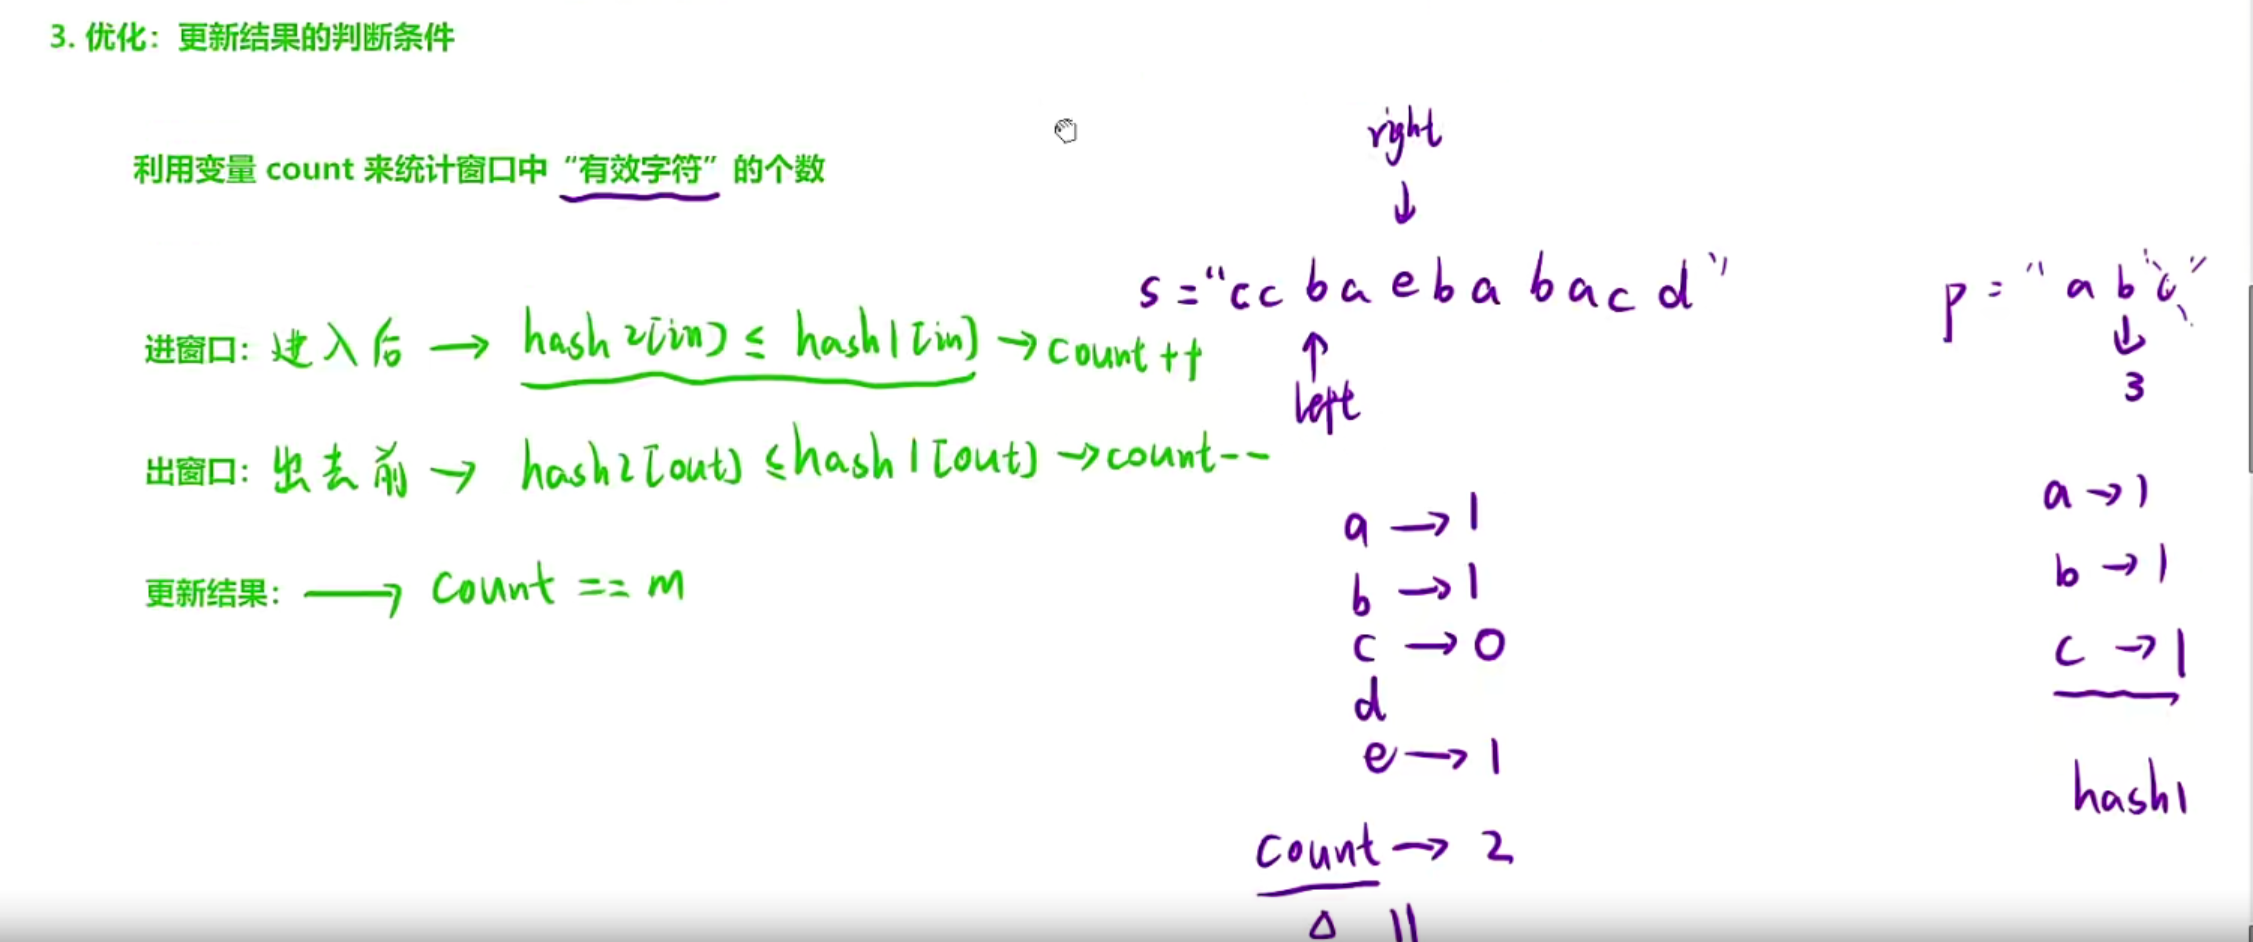 3. 优化：更新结果的判断条件
利用变量 count 来统计窗口中 “有效字符” 的个数
进窗口：进入后 → hash2[in] ≤ hash1[in] → count++
出窗口：出去前 → hash2[out] ≤ hash1[out] → count--
更新结果：→ count == m
right
↓
s = "cc b a e b a b a c d"
↑
left
a → 1
b → 1
c → 0
d
e → 1
count → 2
p = "a b c"
↓
3
a → 1
b → 1
c → 1
hash1